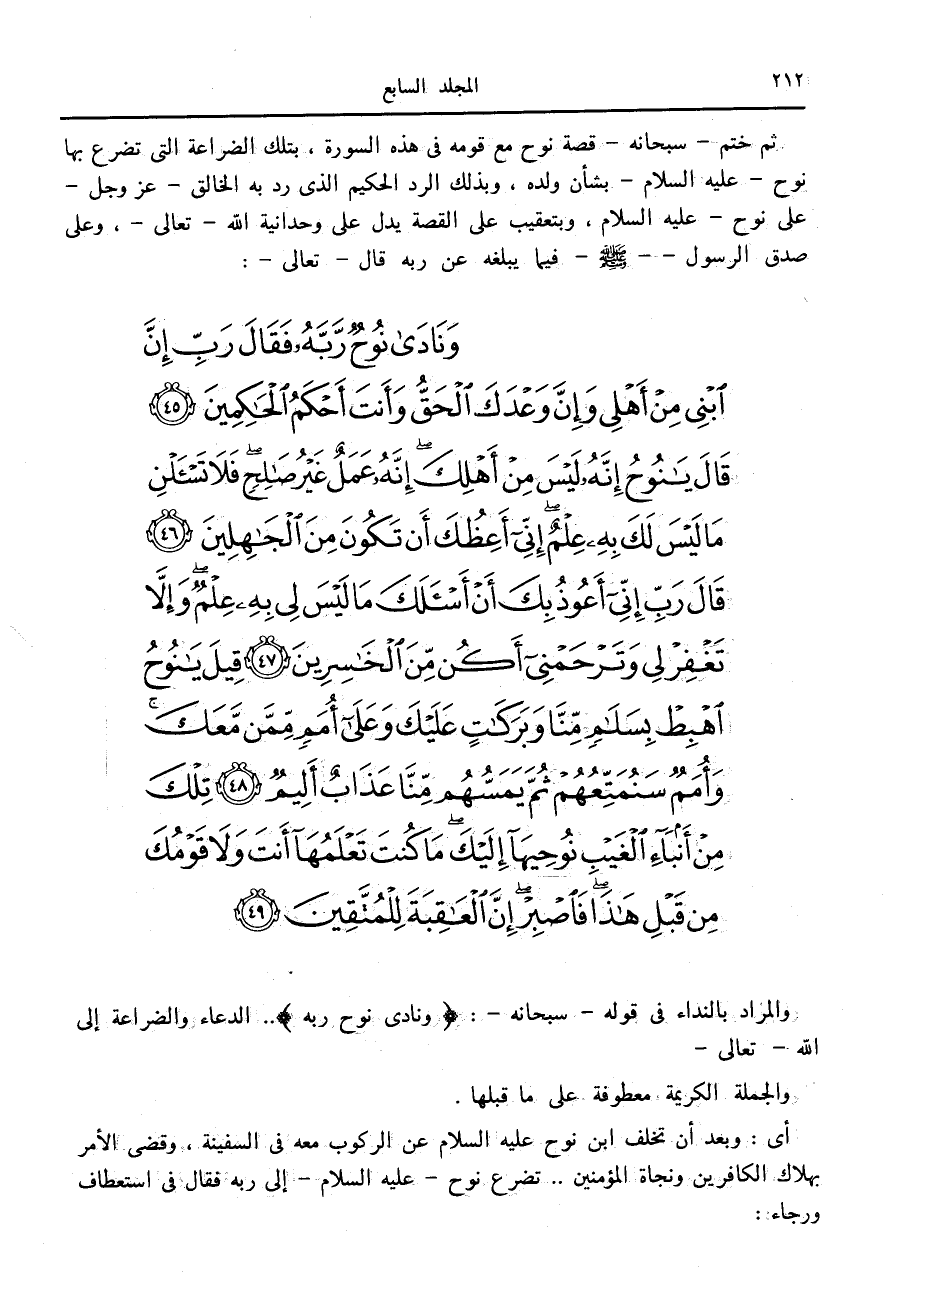 ٢١٢
المجلد السابع
ثم ختم - سبحانه - قصة نوح مع قومه فى هذه السورة ، بتلك الضراعة التى تضرع بها
نوح - عليه السلام - بشأن ولده ، وبذلك الرد الحكيم الذى رد به الخالق - عز وجل -
على نوح - عليه السلام ، وبتعقيب على القصة يدل على وحدانية الله - تعالى - ، وعلى
صدق الرسول - - ﷺ - فيما يبلغه عن ربه قال - تعالى - :
وَنَادَىٰ نُوحٌ رَّبَّهُۥ فَقَالَ رَبِّ إِنَّ
ٱبْنِى مِنْ أَهْلِى وَإِنَّ وَعْدَكَ ٱلْحَقُّ وَأَنتَ أَحْكَمُ ٱلْحَٰكِمِينَ ٤٥
قَالَ يَٰنُوحُ إِنَّهُۥ لَيْسَ مِنْ أَهْلِكَ ۖ إِنَّهُۥ عَمَلٌ غَيْرُ صَٰلِحٍ ۖ فَلَا تَسْـَٔلْنِ
مَا لَيْسَ لَكَ بِهِۦ عِلْمٌ ۖ إِنِّىٓ أَعِظُكَ أَن تَكُونَ مِنَ ٱلْجَٰهِلِينَ ٤٦
قَالَ رَبِّ إِنِّىٓ أَعُوذُ بِكَ أَنْ أَسْـَٔلَكَ مَا لَيْسَ لِى بِهِۦ عِلْمٌ ۖ وَإِلَّا
تَغْفِرْ لِى وَتَرْحَمْنِىٓ أَكُن مِّنَ ٱلْخَٰسِرِينَ ٤٧ قِيلَ يَٰنُوحُ
ٱهْبِطْ بِسَلَٰمٍ مِّنَّا وَبَرَكَٰتٍ عَلَيْكَ وَعَلَىٰٓ أُمَمٍ مِّمَّن مَّعَكَ ۚ
وَأُمَمٌ سَنُمَتِّعُهُمْ ثُمَّ يَمَسُّهُم مِّنَّا عَذَابٌ أَلِيمٌ ٤٨ تِلْكَ
مِنْ أَنۢبَآءِ ٱلْغَيْبِ نُوحِيهَآ إِلَيْكَ ۖ مَا كُنتَ تَعْلَمُهَآ أَنتَ وَلَا قَوْمُكَ
مِن قَبْلِ هَٰذَا ۖ فَٱصْبِرْ ۖ إِنَّ ٱلْعَٰقِبَةَ لِلْمُتَّقِينَ ٤٩
والمراد بالنداء فى قوله - سبحانه - : ﴿ ونادى نوح ربه ﴾.. الدعاء والضراعة إلى
الله - تعالى -
والجملة الكريمة معطوفة على ما قبلها .
أى : وبعد أن تخلف ابن نوح عليه السلام عن الركوب معه فى السفينة ، وقضى الأمر
بهلاك الكافرين ونجاة المؤمنين .. تضرع نوح - عليه السلام - إلى ربه فقال فى استعطاف
ورجاء :